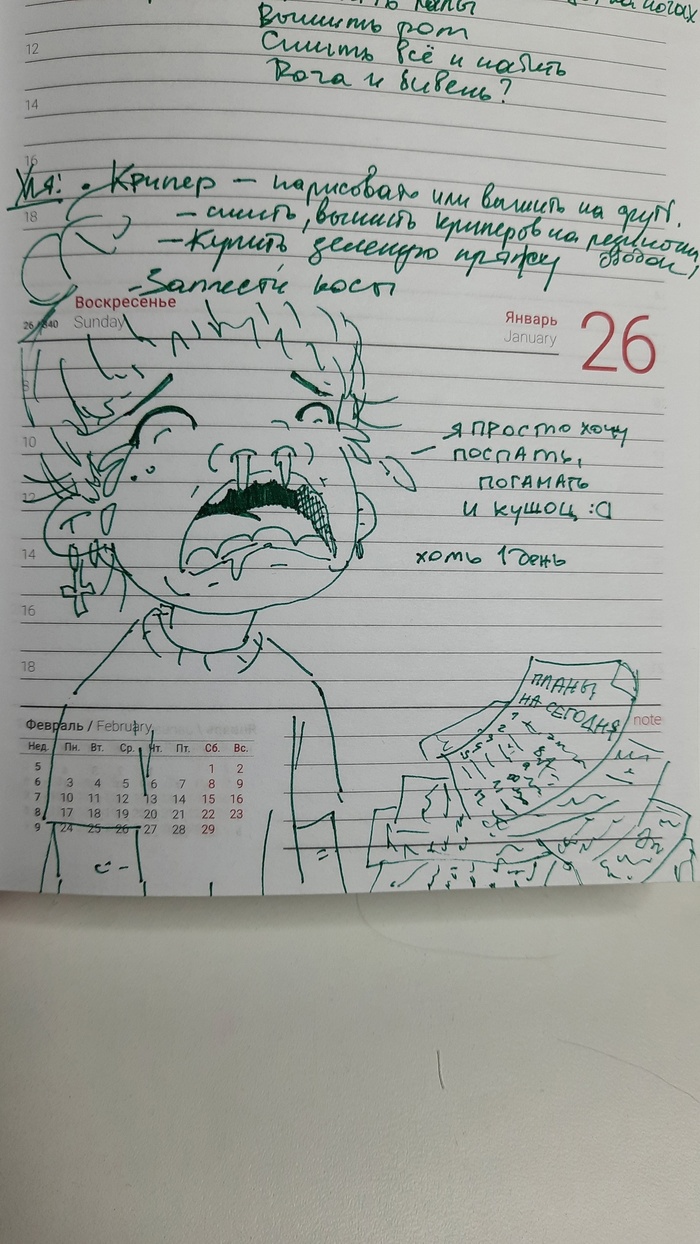 лапы
на ногах
12
Вышить рот
Сшить всё и набить
Рога и бивень?
14
16
Уля: • Крипер – нарисовать или вышить на футб.
18
– сшить, вышить криперов на резиночки
– Купить зеленую пряжу ободок,
– Заплести косы
Воскресенье
Sunday
26 / 340
Январь
January
26
8
10
я просто хочу
поспать,
погамать
и кушоц :а
12
14
хоть 1 день
16
18
планы
на сегодня
note
Февраль / February
Нед. Пн. Вт. Ср. Чт. Пт. Сб. Вс.
5 1 2
6 3 4 5 6 7 8 9
7 10 11 12 13 14 15 16
8 17 18 19 20 21 22 23
9 24 25 26 27 28 29